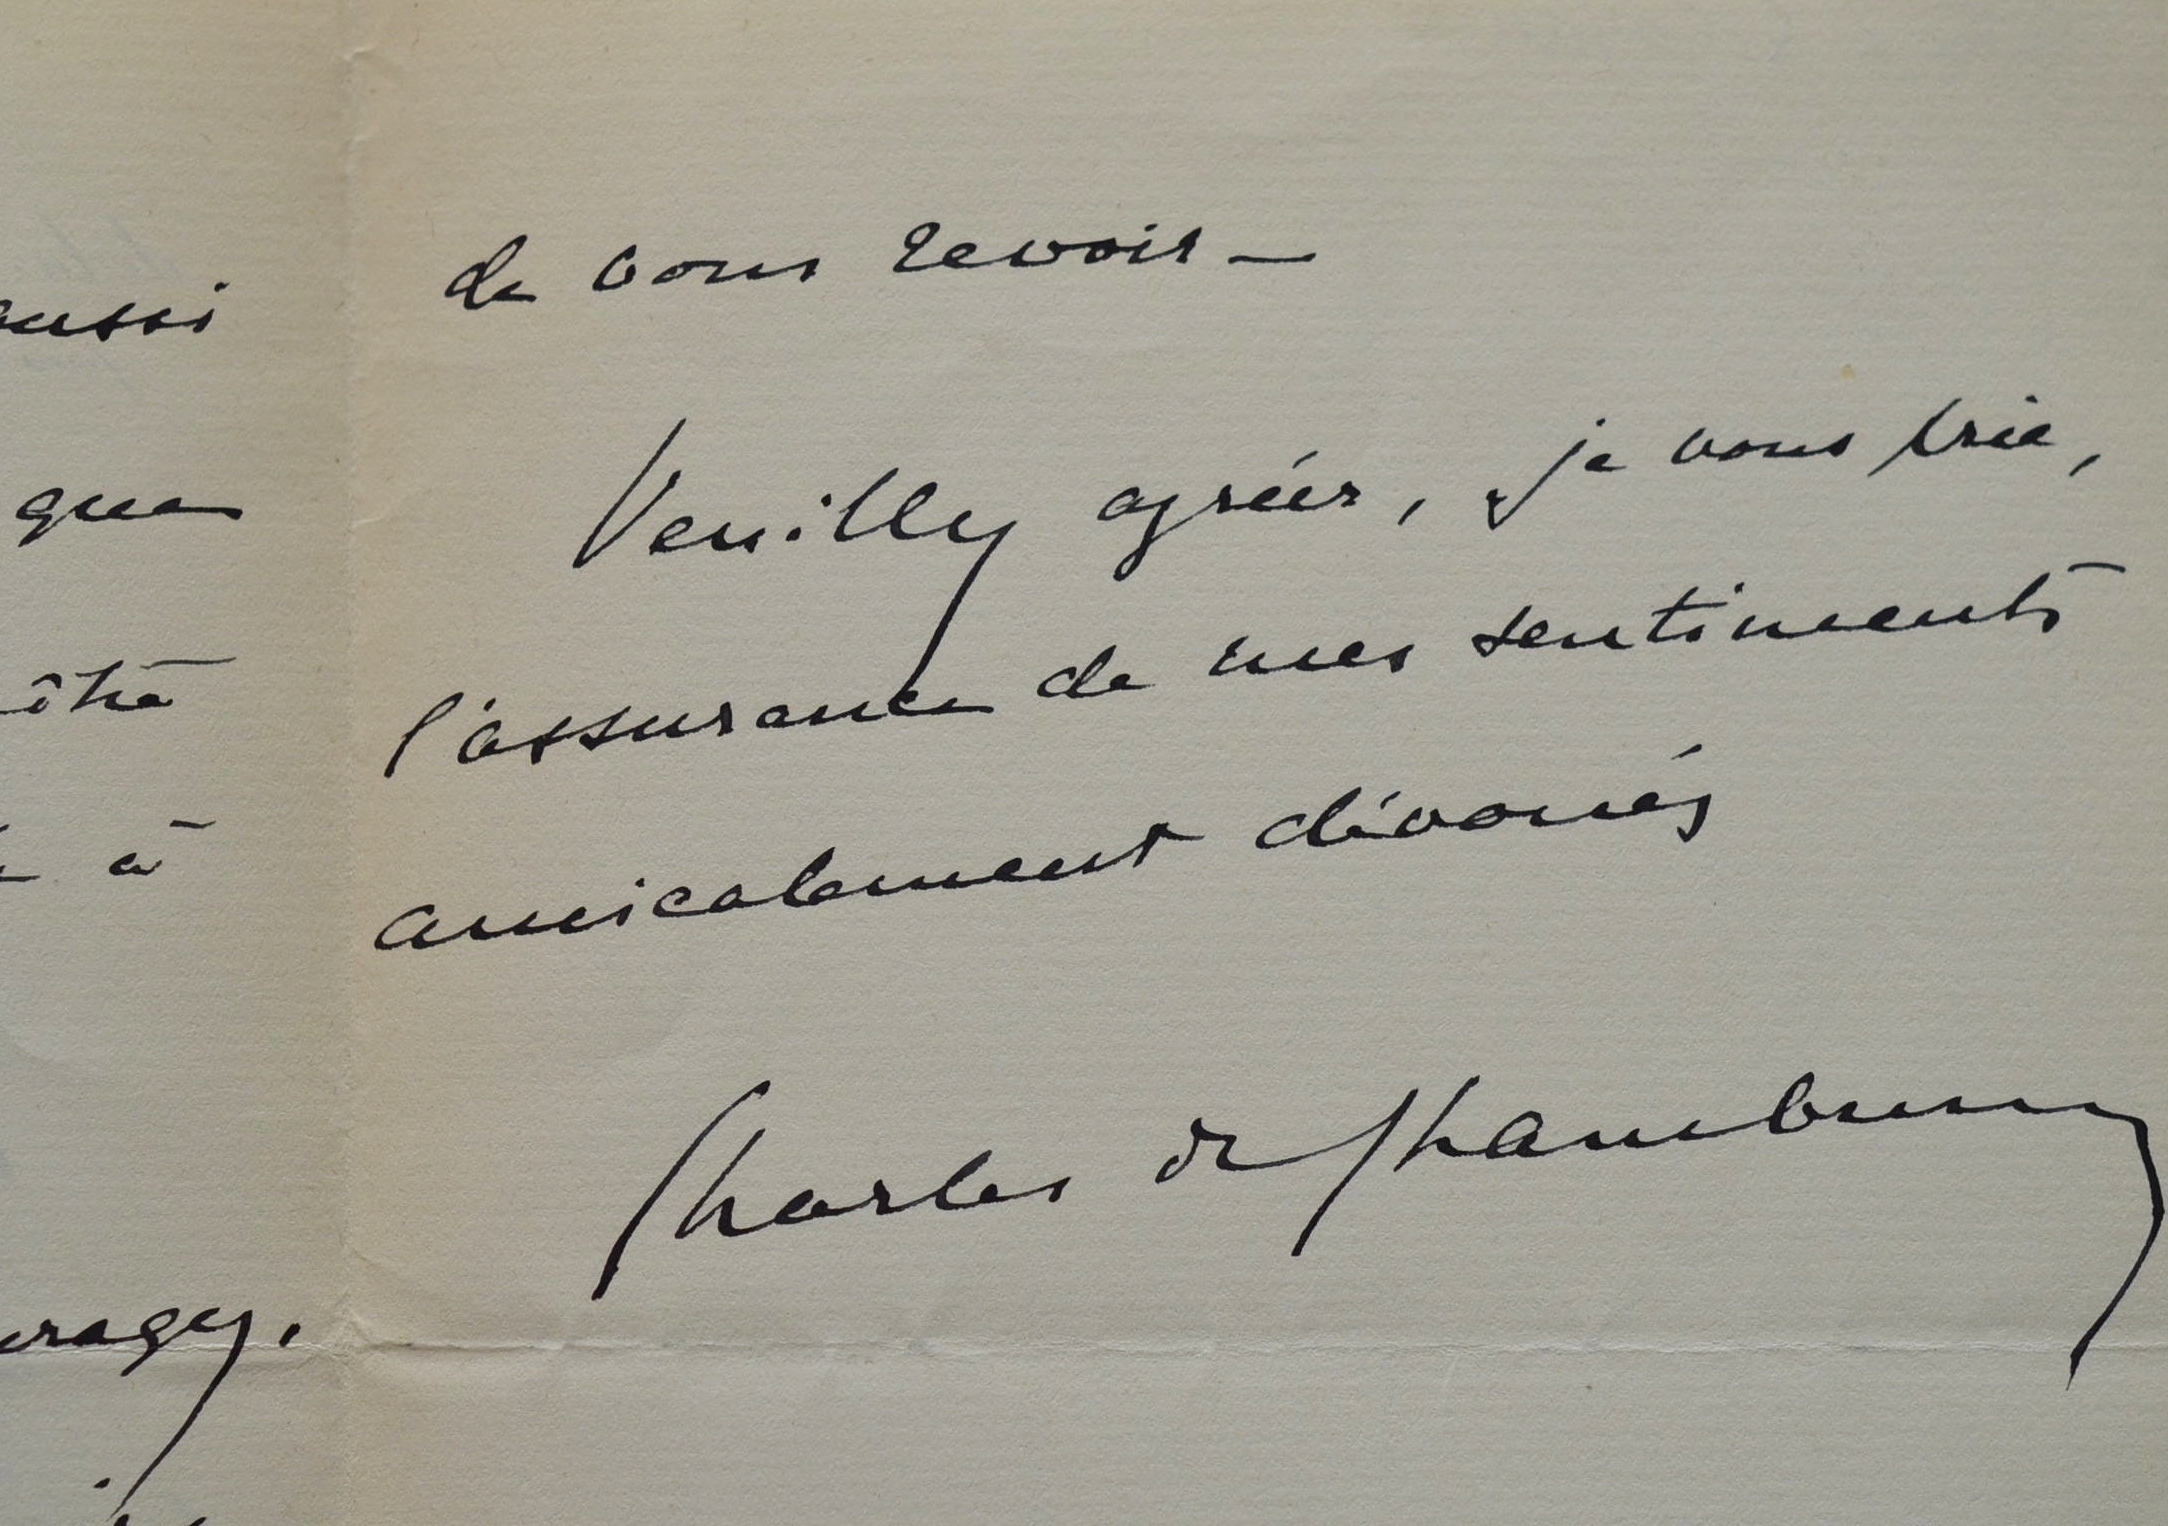 aussi
que
à
de vous revoir —
Veuillez agréer, je vous prie,
l'assurance de mes sentiments
amicalement dévoués
Charles de Chambrun